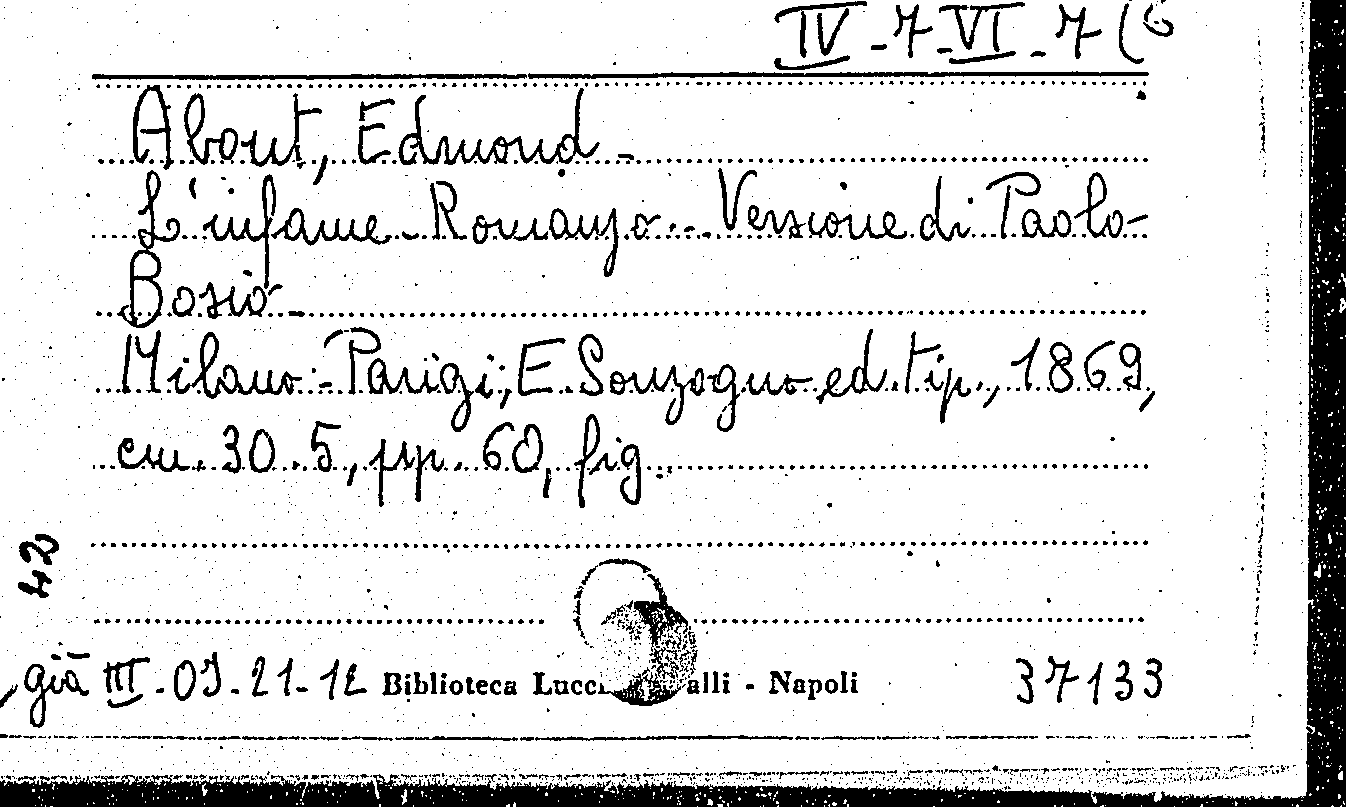 IV-7-VI-7(6
About, Edmond -
L'infame - Romanzo - Versione di Paolo
Bosio -
Milano - Parigi; E. Sonzogno ed. tip., 1869,
cm. 30.5, pp. 60, fig.
42
già III-09-21-12 Biblioteca Lucc alli - Napoli 37133